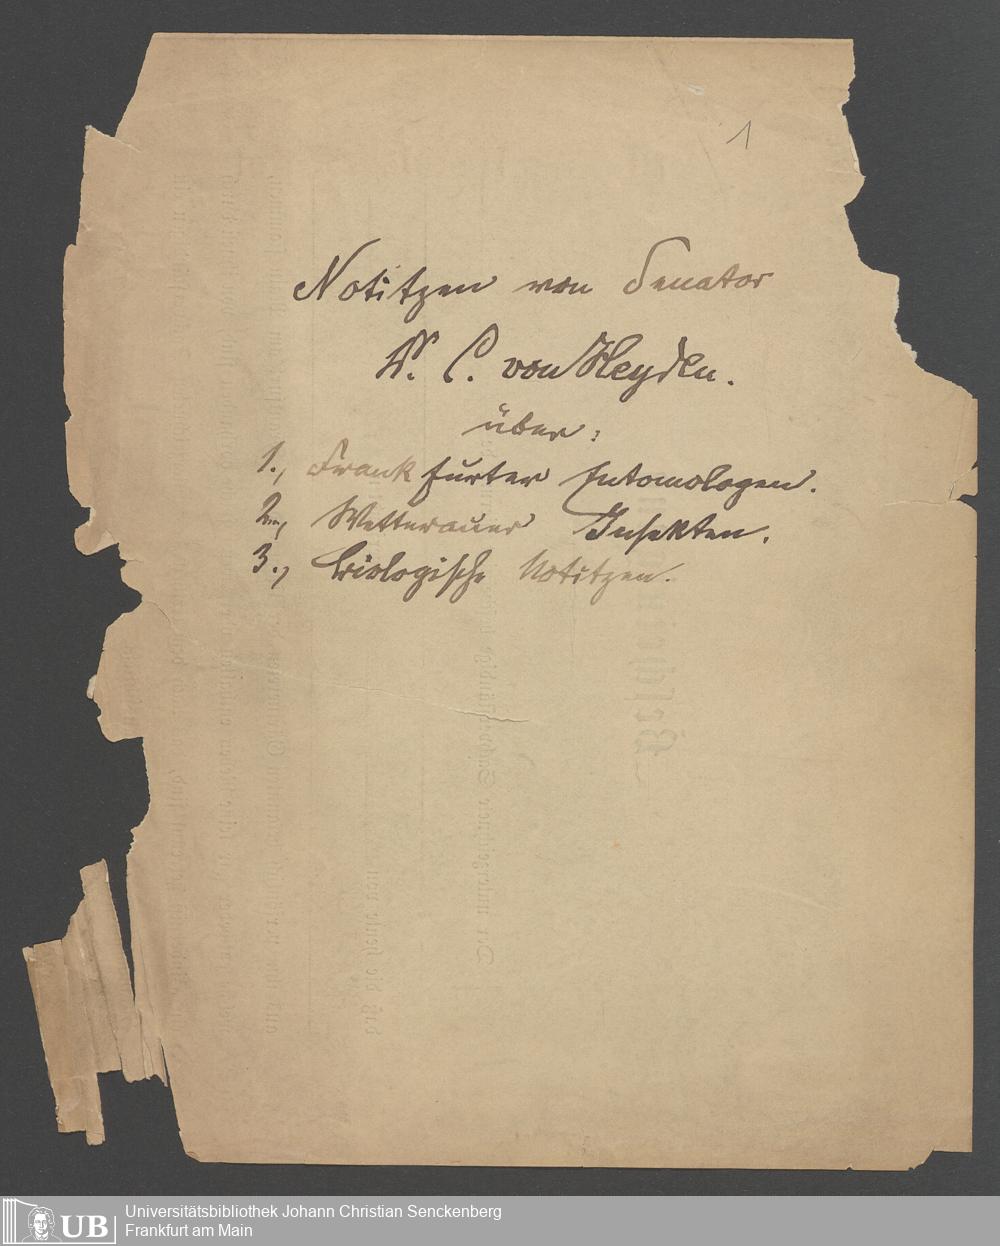 1
Notitzen von Senator
Dr. C. von Heyden.
über:
1., Frankfurter Entomologen.
2., Wetterauer Insekten.
3., biologische Notitzen.
UB
Universitätsbibliothek Johann Christian Senckenberg
Frankfurt am Main